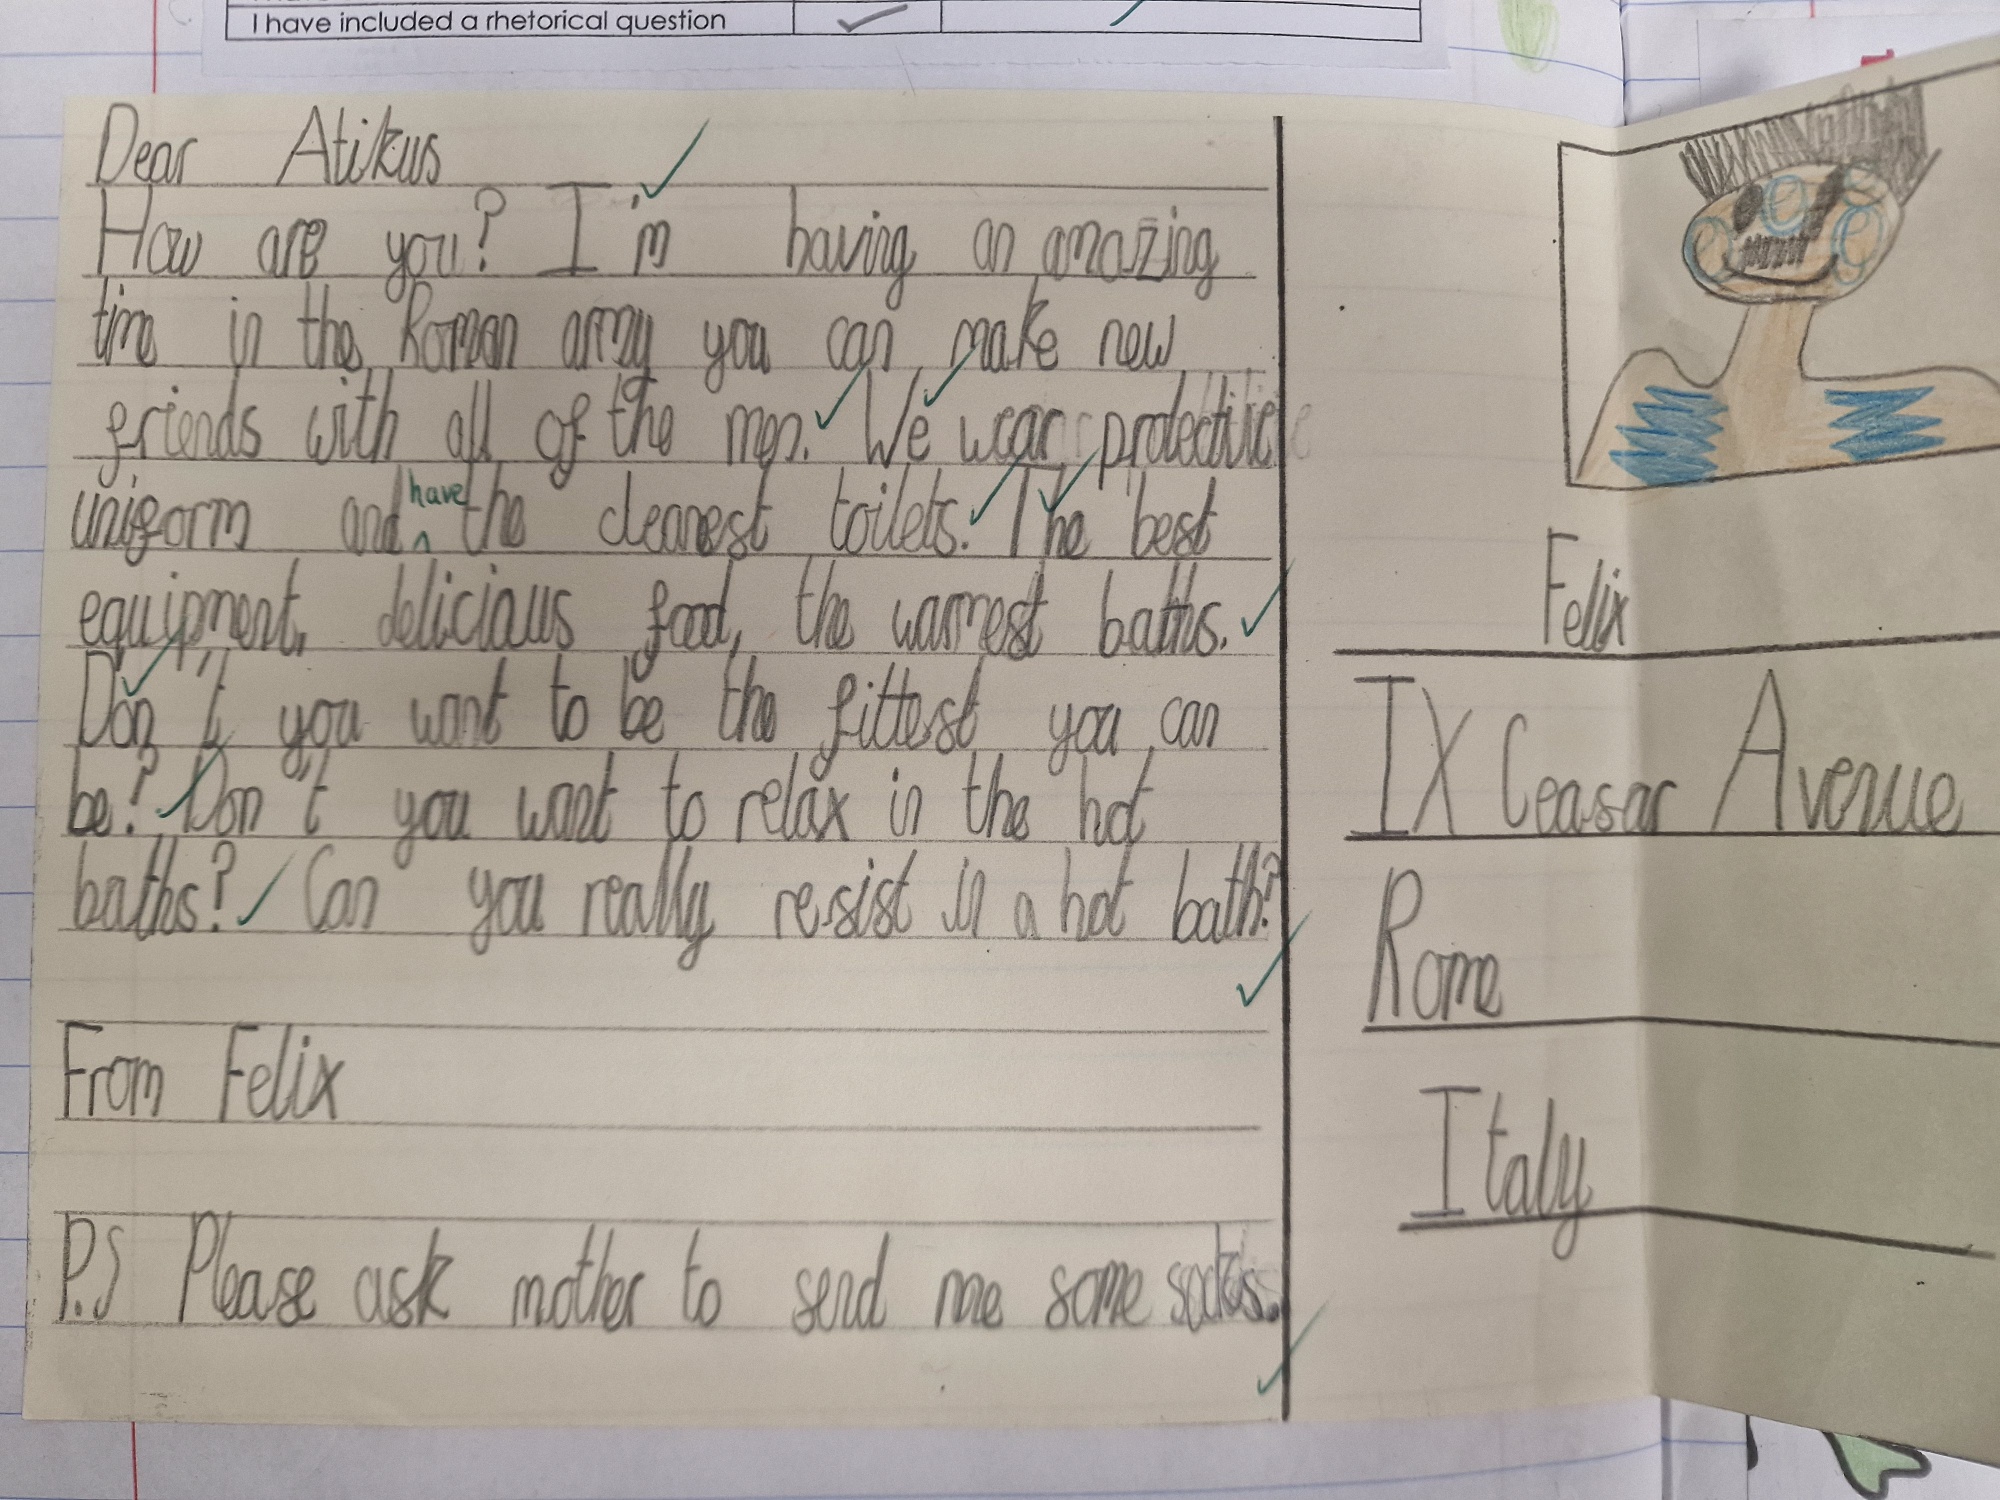 I have included a rhetorical question
Dear Atikus
How are you? I'm having an amazing
time in the Roman army you can make new
friends with all of the men. We wear protective
uniform and have the cleanest toilets. The best
equipment, delicious food, the warmest baths.
Don't you want to be the fittest you can
be? Don't you want to relax in the hot
baths? Can you really resist in a hot bath?
From Felix
P.S Please ask mother to send me some socks.
Felix
IX Ceasar Avenue
Rome
Italy